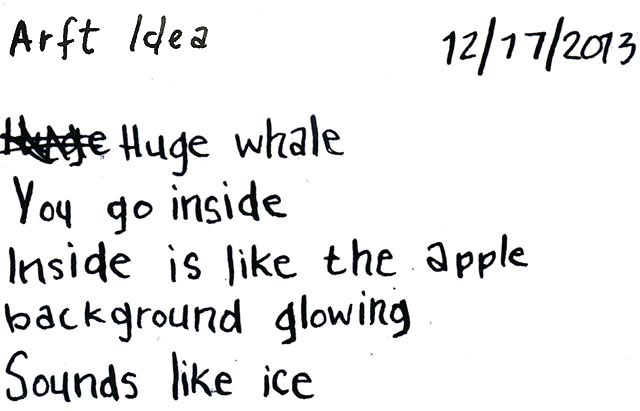 Arft Idea 12/17/2013
Huge whale
You go inside
Inside is like the apple
background glowing
Sounds like ice